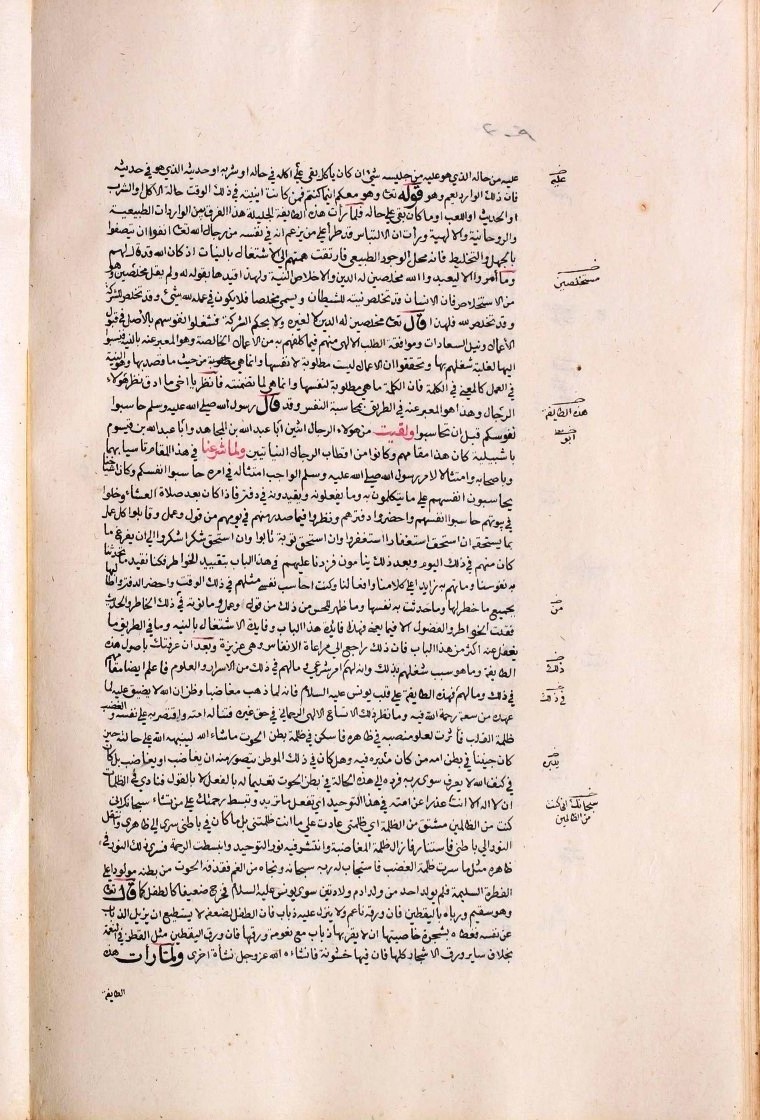 ٢٠٩
عليه من حاله الذي هو عليه من جليسه شيء ان كان ياكل بقي على اكله في حاله او شربه او حديثه الذي هو في حديثه
فان ذلك الوارد يعم وهو قوله تعا وهو معكم اينما كنتم فمن كانت اينيته في ذلك الوقت حالة الاكل والشرب
او الحديث او اللعب او ما كان بقي على حاله فلما رأت هذه الطايفة الجليلة هذا الفرق بين الواردات الطبيعية
والروحانية والالهية ورأت ان الالتباس قد طرأ على من يزعم انه في نفسه من رجال الله تعا انفوا ان يتصفوا
بالجهل والتخليط فانه محل الوجود الطبيعي فارتقت همتهم الى الاشتغال بالنيات اذ كان الله قد قال لهم
وما أمروا الا ليعبدوا الله مخلصين له الدين والاخلاص النية ولهذا قيدها بقوله له ولم يقل مخلصين وهو
من الاستخلاص فان الانسان قد تخلص نيته للشيطان ويسمى مخلصا فلا يكون في عمله لله شيء وقد تخلص للشركة
وقد تخلص لله فلهذا قال تعا مخلصين له الدين لا لغيره ولا بحكم الشركة فشغلوا نفوسهم بالاصل في قبول
الاعمال ونيل السعادات وموافقة الطلب الالهي منهم فيما كلفهم به من الاعمال الخالصة وهو المعبر عنه بالنية فنسبوا
اليها لغلبة شغلهم بها وتحققوا ان الاعمال ليست مطلوبة لانفسها وانما هي مطلوبة من حيث ما قصد بها وهو النية
في العمل كالمعنى في الكلمة فان الكلمة ما هي مطلوبة لنفسها وانما هي لما تضمنته فانظر يا اخي ما ادق نظر هؤلاء
الرجال وهذا هو المعبر عنه في الطريق بمحاسبة النفس وقد قال رسول الله صلى الله عليه وسلم حاسبوا
نفوسكم قبل ان تحاسبوا ولقيت من هؤلاء الرجال اثنين ابا عبد الله بن المجاهد وابا عبد الله بن قيسوم
باشبيلية كان هذا مقامهم وكانوا من اقطاب الرجال النياتيين ولما شرعنا في هذا المقام تاسيا بهما
وباصحابه وامتثالا لامر رسول الله صلى الله عليه وسلم الواجب امتثاله في امره حاسبوا انفسكم وكان اشياخنا
يحاسبون انفسهم على ما يتكلمون به وما يفعلونه ويقيدونه في دفتر فاذا كان بعد صلاة العشاء وخلوا
في بيوتهم حاسبوا انفسهم واحضروا دفترهم ونظروا فيما صدر منهم في يومهم من قول وعمل وقابلوا كل عمل
بما يستحقه ان استحق استغفارا استغفروا وان استحق توبة تابوا وان استحق شكرا شكروا الى ان يفرغ ما
كان منهم في ذلك اليوم وبعد ذلك ينامون فزدنا عليهم في هذا الباب بتقييد الخواطر فكنا نقيد ما تحدثنا
به نفوسنا وما تهم به زايدا على كلامنا وافعالنا وكنت احاسب نفسي مثلهم في ذلك الوقت واحضر الدفتر واطالبها
بجميع ما خطر لها وما حدثت به نفسها وما ظهر للحس من ذلك من قول وعمل وما نوته في ذلك الخاطر والحديث
فقلت الخواطر والفضول الا فيما يعني فهذه فايدة هذا الباب وفايدة الاشتغال بالنية وما في الطريق ما
يغفل عنه اكثر من هذا الباب فان ذلك راجع الى مراعاة الانفاس وهي عزيزة وبعد ان عرفتك باصول هذه
الطايفة وما هو سبب شغلهم بذلك وانه لهم امر شرعي وما لهم في ذلك من الاسرار والعلوم فاعلم ايضا مقامهم
في ذلك وما لهم فهذه الطايفة على قلب يونس عليه السلام فانه لما ذهب مغاضبا وظن ان الله لا يضيق عليه لما
عهده من سعة رحمة الله فيه وما نظر ذلك الاتساع الالهي الرحماني في حق غيره فتناله امته واقتصر به على نفسه والغضب
ظلمة القلب فاثرت لعلو منصبه في ظاهره فاسكن في ظلمة بطن الحوت ما شاء الله لينبهه الله على حالته حين
كان جنينا في بطن امه من كان مدبره فيه وهل كان في ذلك الموطن يتصور منه ان يغاضب او يغاضب بل كان
في كنف الله لا يعرف سوى ربه فرده الى هذه الحالة في بطن الحوت تعليما له بالفعل لا بالقول فنادى في الظلمات
ان لا اله الا انت عذرا عن امته في هذا التوحيد اي تفعل ما تريد وتبسط رحمتك على من تشاء سبحانك اني
كنت من الظالمين مشتق من الظلمة اي ظلمتي عادت علي ما انت ظلمتني بل ما كان في باطني سرى الى ظاهري وانتقل
النور الى باطني فاستنار فازال ظلمة المغاضبة وانتشر فيه نور التوحيد وانبسطت الرحمة فسرى ذلك النور في
ظاهره مثل ما سرت ظلمة الغضب فاستجاب له ربه سبحانه ونجاه من الغم فقذفه الحوت من بطنه مولودا على
الفطرة السليمة فلم يولد احد من ولد ادم ولادتين سوى يونس عليه السلام فخرج ضعيفا كالطفل كما قال تعا
وهو سقيم ورباه باليقطين فان ورقه ناعم ولا ينزل عليه ذباب فان الطفل لضعفه لا يستطيع ان يزيل الذباب
عن نفسه فغطاه بشجرة خاصيتها ان لا يقربها ذباب مع نعومة ورقها فان ورق اليقطين مثل القطن في النعمة
بخلاف ساير ورق الاشجار كلها فان فيها خشونة فانشاه الله عز وجل نشأة اخرى ولما رأت هذه
الطايفة
عليه
مستخلصين
هذه الطايفة
ابو
من
ذلك
في ذلك
سبحانك اني كنت
من الظالمين